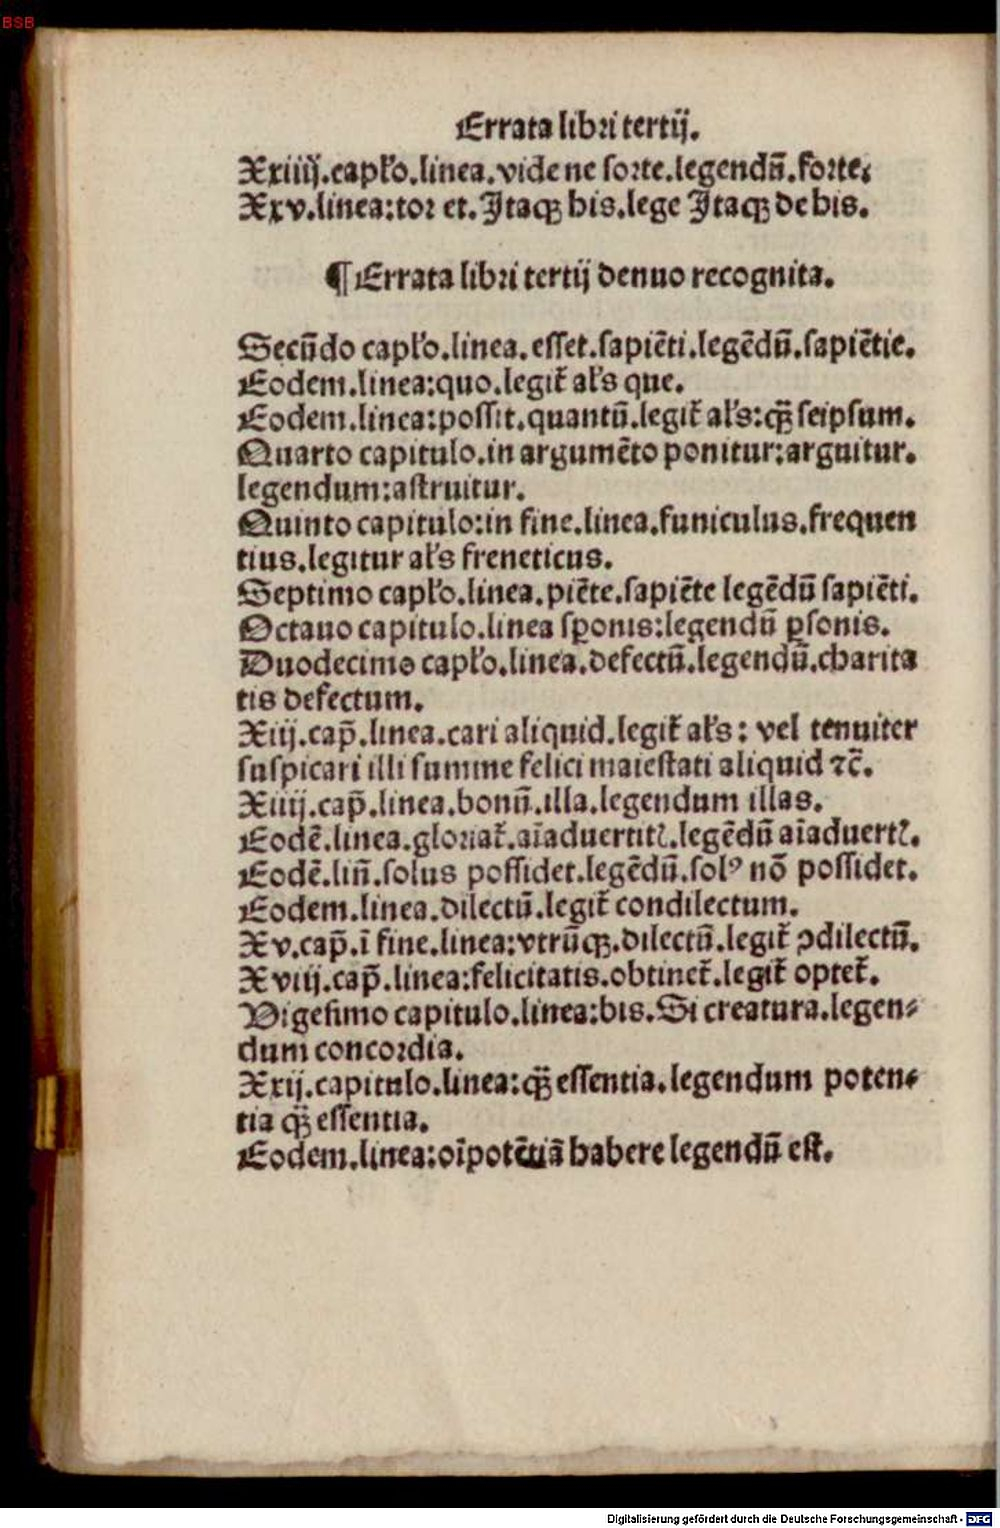 BSB
Errata libri tertij.
Xxiiij.capłᵒo.linea.vide ne sorte.legendū.forte.
Xxv.linea:tor et.Itaqꝫ bis.lege Itaqꝫ de bis.
¶ Errata libri tertij denuo recognita.
Secūdo capłᵒo.linea.esset.sapiēti.legēdū.sapiētie.
Eodem.linea:quo.legit᷑ ał's que.
Eodem.linea:possit.quantū.legit᷑ ał's:qꝫ̄ seipsum.
Quarto capitulo.in argumēto ponitur:arguitur.
legendum:astruitur.
Quinto capitulo:in fine.linea.funiculus.frequen
tius.legitur ał's freneticus.
Septimo capł'o.linea.piēte.sapiēte legēdū sapiēti.
Octauo capitulo.linea sꝑonis:legendū ꝑsonis.
Duodecimo capł'o.linea.defectū.legendū.charita
tis defectum.
Xiij.cap̄.linea.cari aliquid.legit᷑ ał's: vel tenuiter
suspicari illi summe felici maiestati aliquid ⁊c̄.
Xiiij.cap̄.linea.bonū.illa.legendum illas.
Eodē.linea.gloriat᷑.aīaduertitꝭ.legēdū aīaduertꝭ.
Eodē.liñ.solus possidet.legēdū.solꝰ nō possidet.
Eodem.linea.dilectū.legit᷑ condilectum.
Xv.cap̄.ī fine.linea:vtrūqꝫ.dilectū.legit᷑ ↄdilectū.
Xviij.cap̄.linea:felicitatis.obtinet᷑.legit᷑ optet᷑.
Vigesimo capitulo.linea:bis.Si creatura.legen⸗
dum concordia.
Xxij.capitulo.linea:qꝫ̄ essentia.legendum poten⸗
tia qꝫ̄ essentia.
Eodem.linea:oīpotētiā habere legendū est.
Digitalisierung gefördert durch die Deutsche Forschungsgemeinschaft - DFG